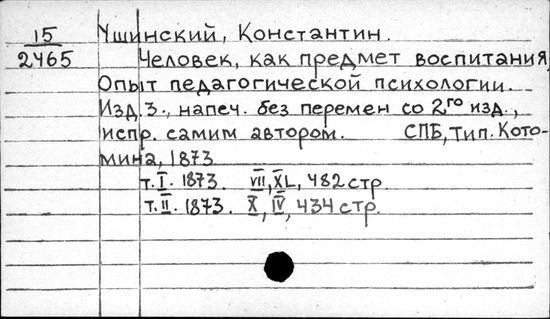 15 Ушинский, Константин.
2465 Человек, как предмет воспитания
Опыт педагогической психологии.
Изд 3., напеч. без перемен со 2го изд.,
испр. самим автором. СПБ, Тип. Кото-
мина, 1873
т. I. 1873. VII, XL, 482 стр.
т. II. 1873. X, IV, 434 стр.